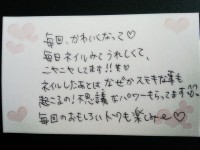 毎回、かわいくなって♡
毎日ネイルみてうれしくて、
ニヤニヤしてます!!
ネイルしたあとはなぜかステキな事も
起こるの!不思議なパワーもらってます
毎回のおもしろいトークも楽しみ♡